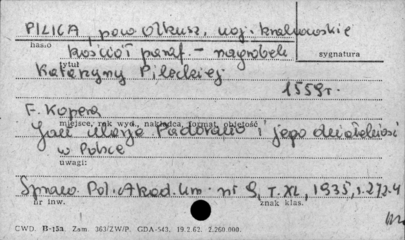 PILICA, pow. Olkusz, woj. krakowskie
hasło
kościół paraf. – nagrobek
sygnatura
tytuł
Katarzyny Pileckiej
1559r.
F. Kopera
miejsce, rok wyd., nakładca, format, objętość
Jan Maria Padovano i jego działalność
w Polsce
uwagi:
Spraw. Pol. Akad. Um. nr 9, T. XL, 1935, s. 272-4
nr inw.
znak klas.
CWD. B-15a Zam. 363/ZW/P. GDA-543. 19.2.62. 2.260.000.